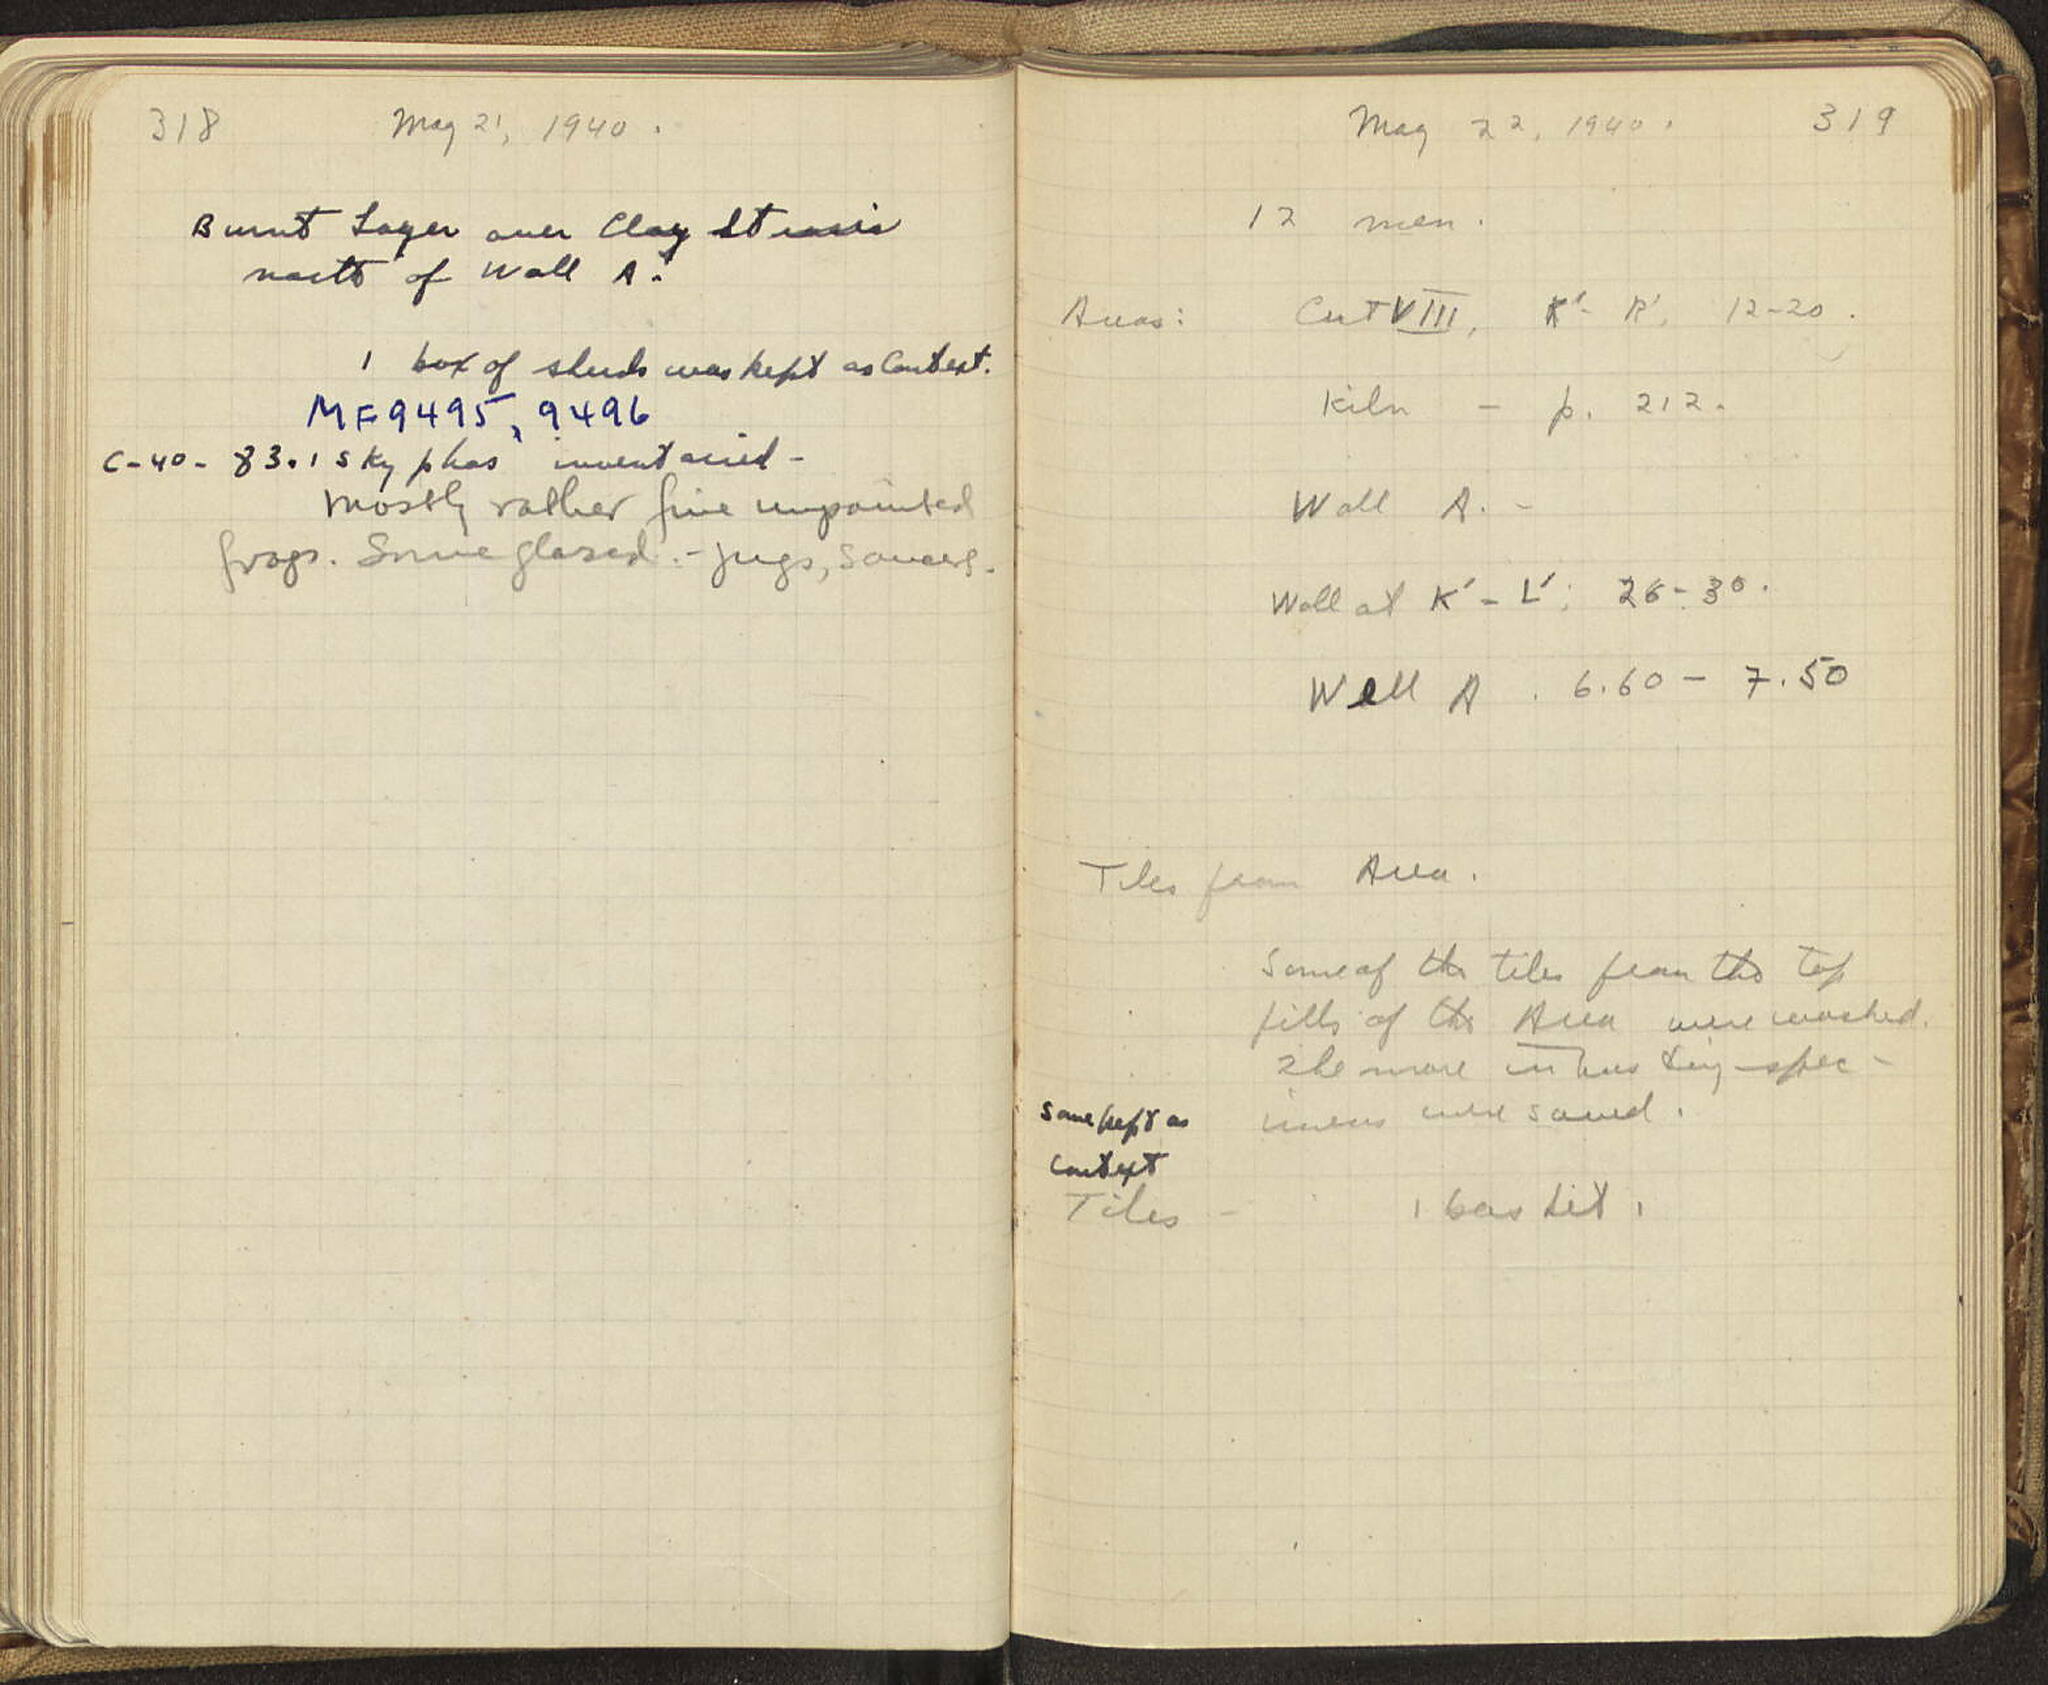 318 May 21, 1940.
Burnt Layer over Clay Strosis
north of Wall A.
1 box of sherds was kept as Context.
MF 9495, 9496
C-40-83. 1 Skyphos inventoried -
Mostly rather fine unpainted
frags. Some glazed. - jugs, saucers.
May 22, 1940. 319
12 men.
Areas: Cut VIII, K'- R', 12-20.
Kiln - p. 212.
Wall A. -
Wall at K'- L'; 26-30.
Well A . 6.60 - 7.50
Tiles from Area.
Some of the tiles from the top
fills of the Area were washed.
The more interesting spec-
imens were saved.
Some kept as
Context
Tiles - 1 basket.